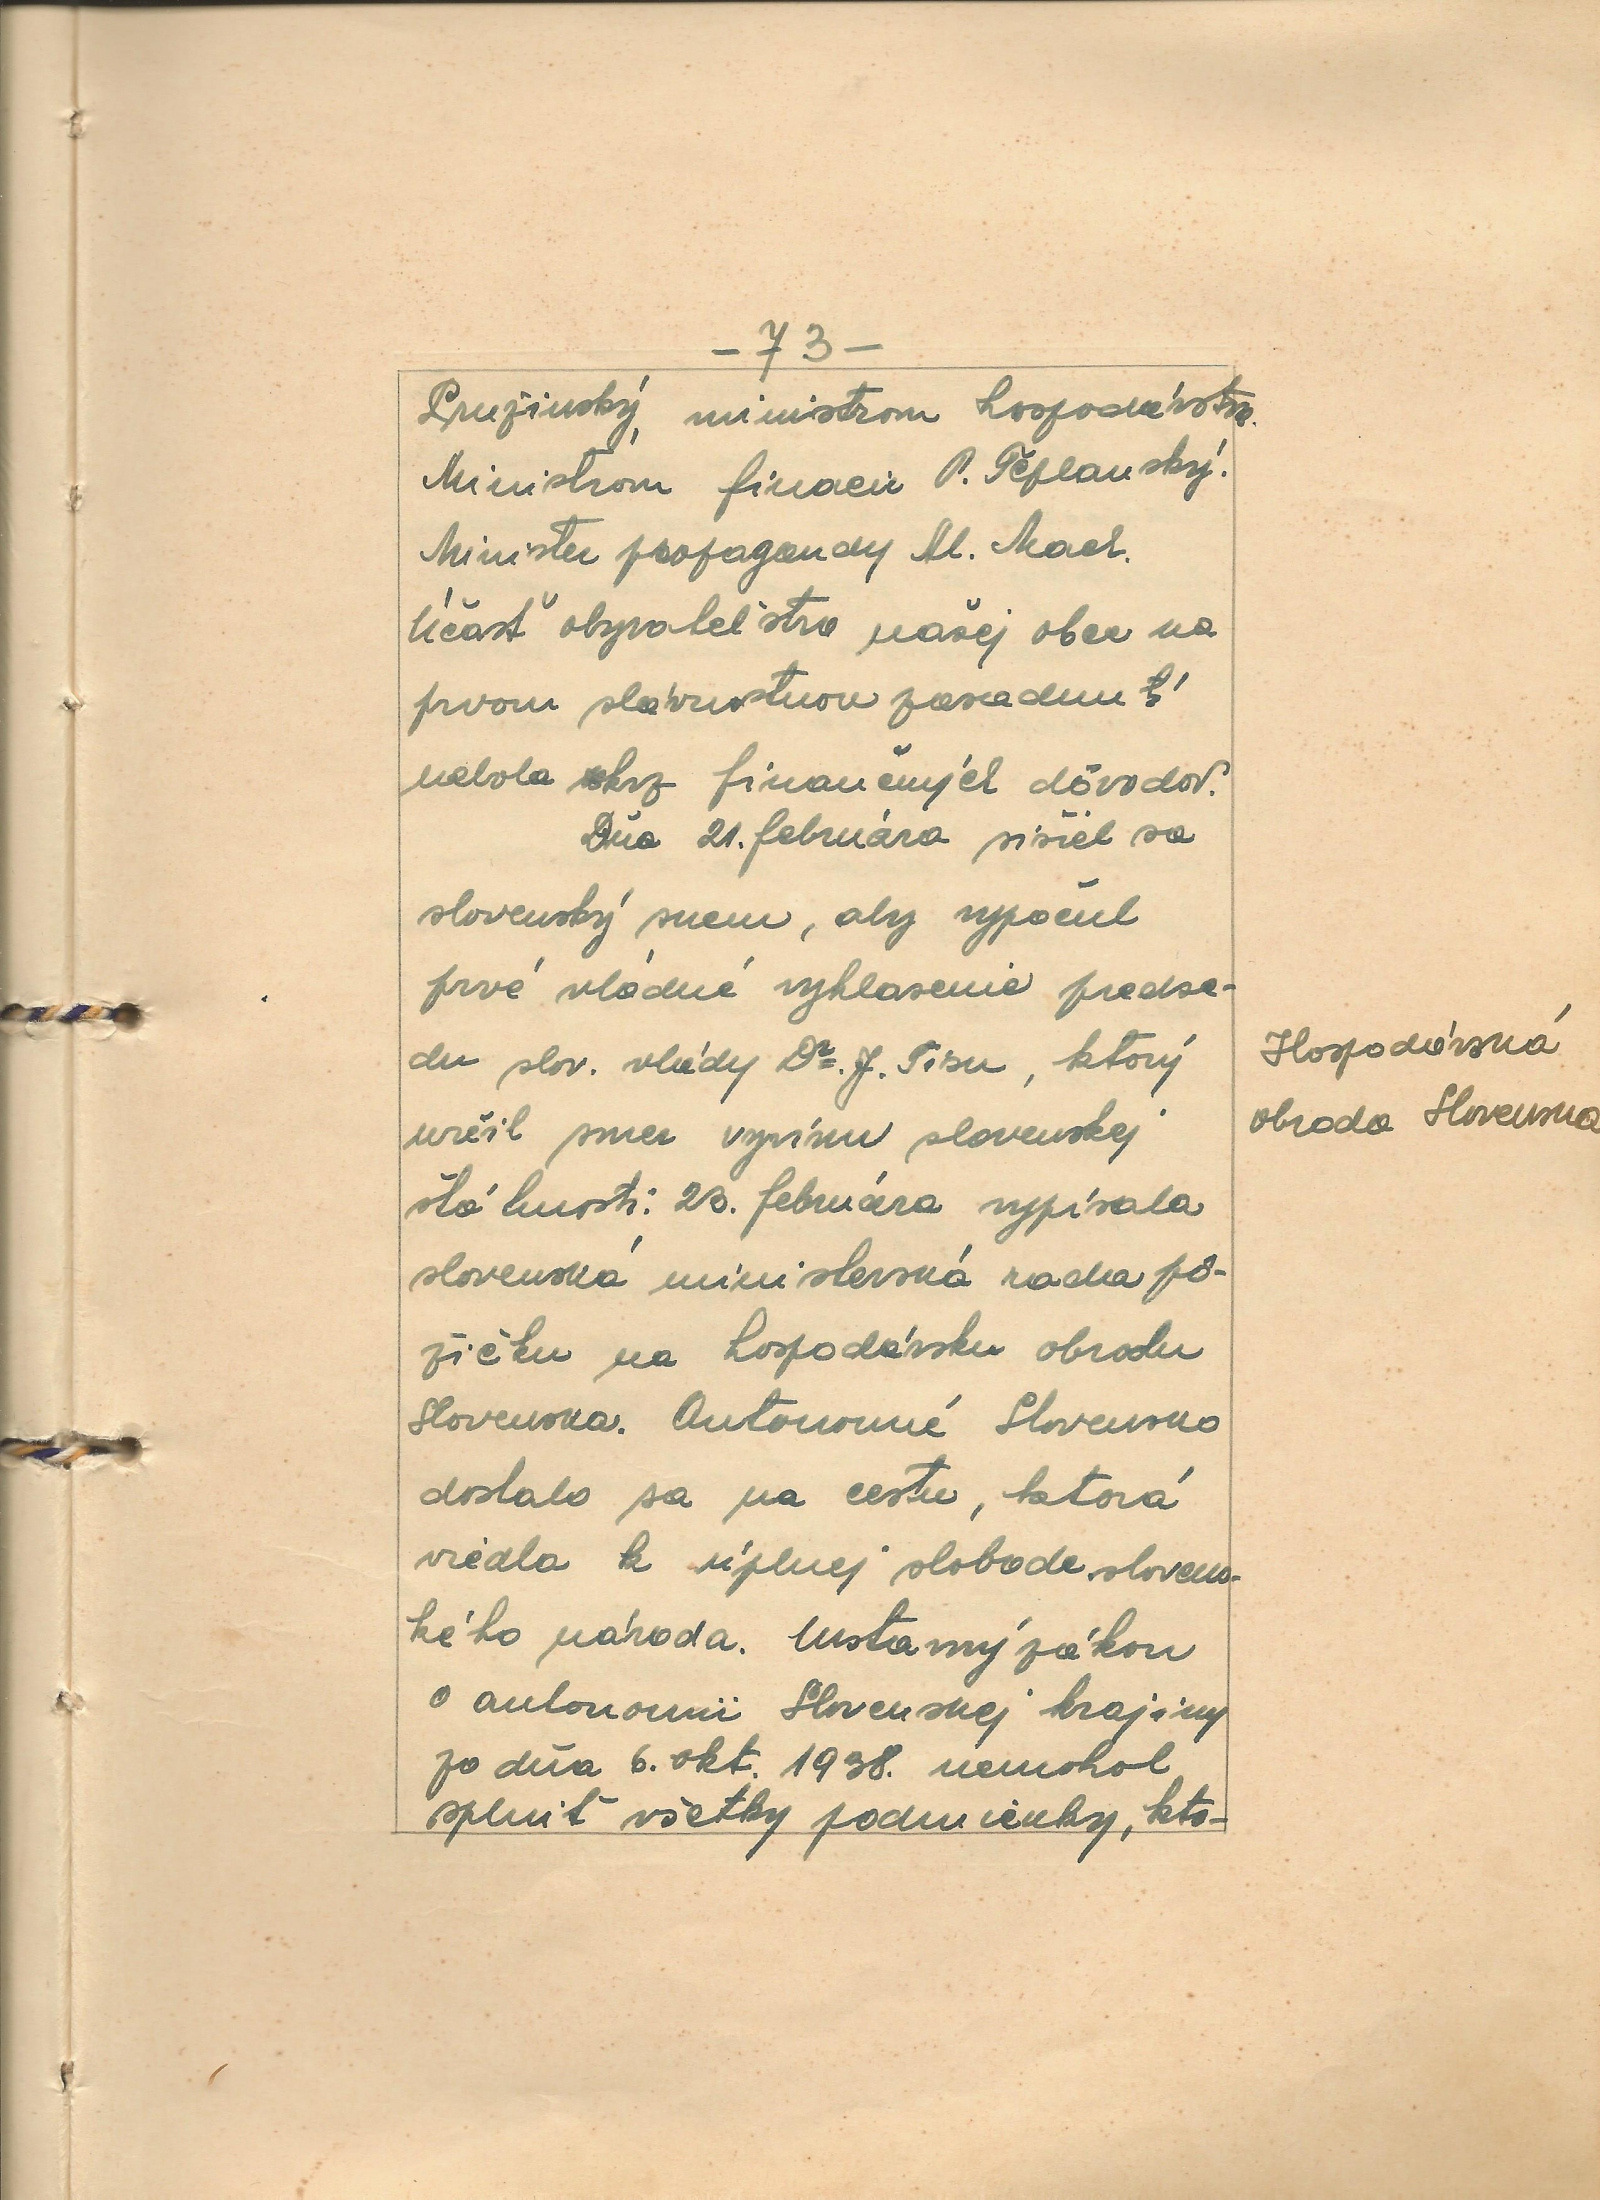 - 73 -
Pružinský, ministrom hospodárstva.
Ministróm finacii P. Tĕplanský.
Minister propagandy Al. Mach.
Účasť obyvateľstva našej obce na
prvom slávnostnom zasadnutí
nebola skrz finančných dôvodov.
Dňa 21. februára sišiel sa
slovenský snem, aby vypočul
prvé vládné vyhlasenie predse-
du slov. vlády Dr. J. Tisu, ktorý
určil smer vyvinu slovenskej
štátnosti. 23. februára vypísala
slovenská ministerská rada pô-
žičku na hospodársku obrodu
Slovenska. Autonomné Slovensko
dostalo sa na cestu, ktorá
viedla k úplnej slobode sloven-
kého národa. Ustavný zákon
o autonomii Slovenskej krajiny
zo dňa 6. okt. 1938. nemohol
splniť všetky podmienky, kto-
Hospodárská
obroda Slovenska